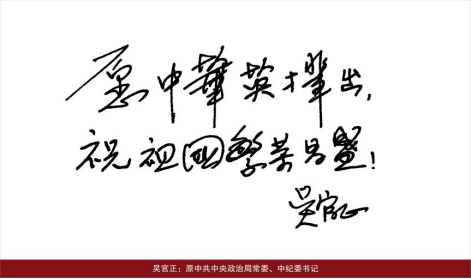 愿中華英才輩出，
祝祖國繁荣昌盛！
吴官正
吴官正：原中共中央政治局常委、中纪委书记